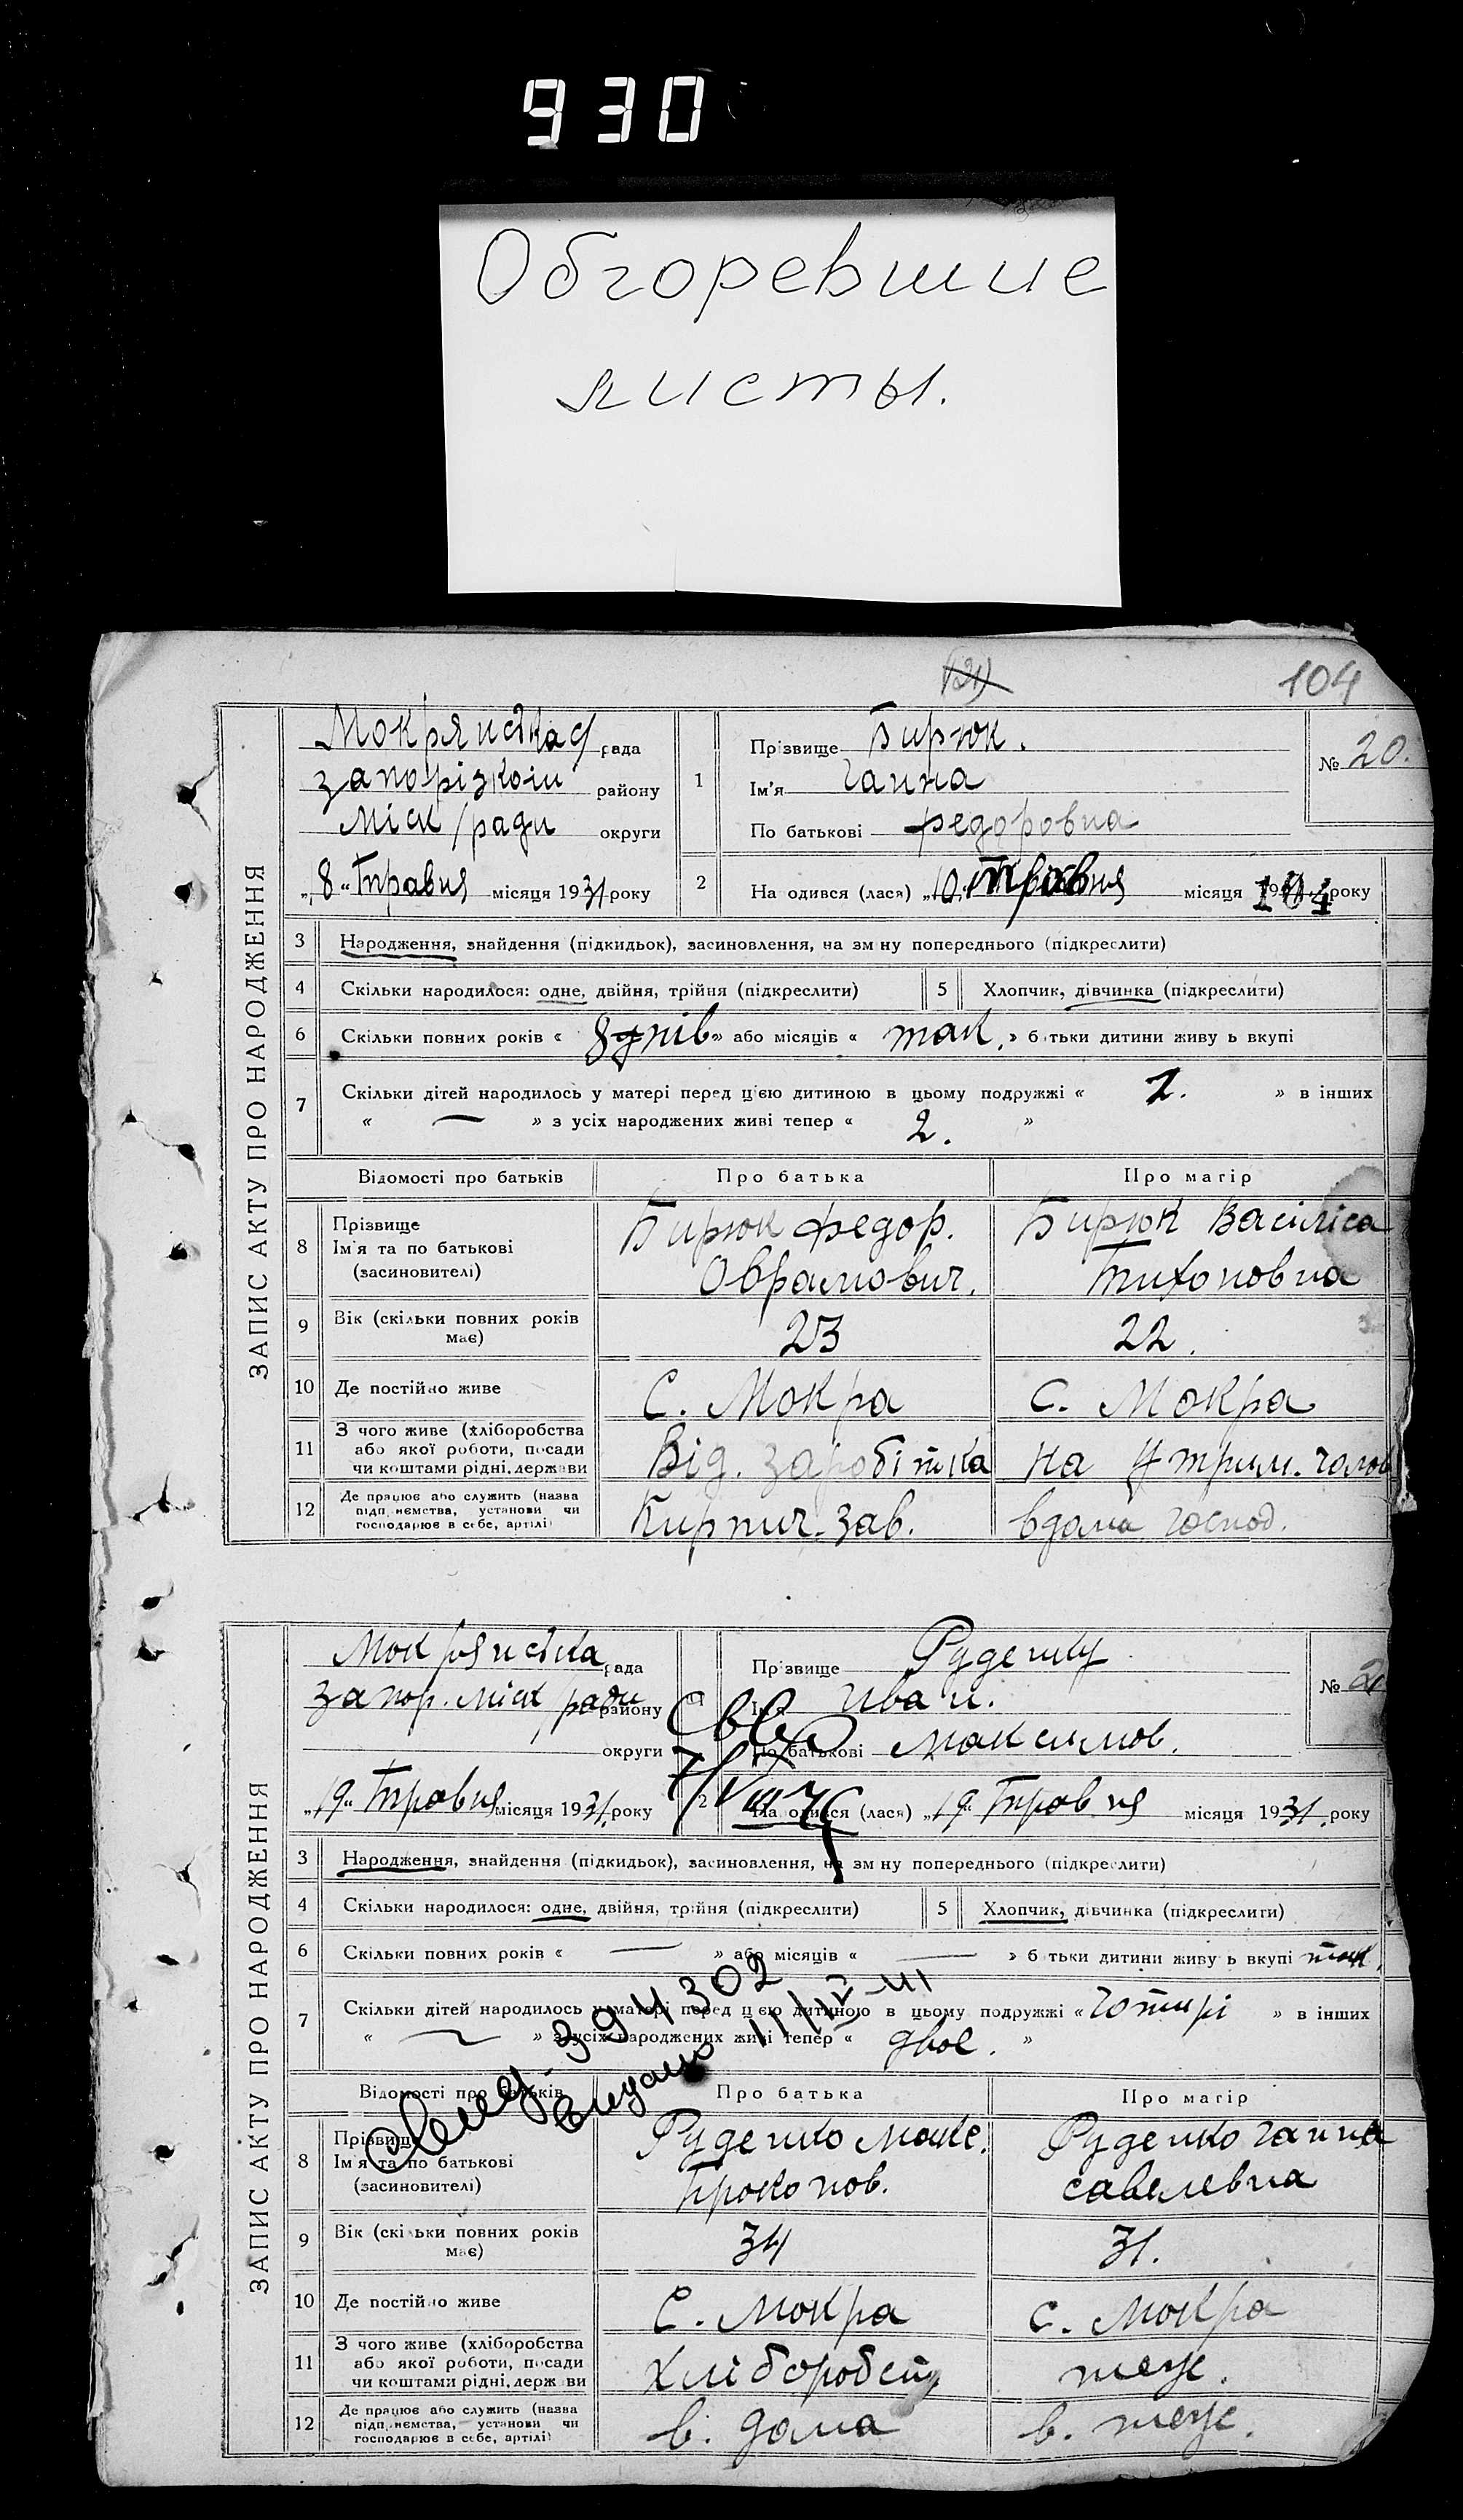 930
Обгоревшие
листы.
104
ЗАПИС АКТУ ПРО НАРОДЖЕННЯ
Мокрянська рада
Запорізкоій району
Міск/ради округи
„8" Травня місяця 1931 року
1
Прізвище Бирюк.
Ім'я Ганна
По батькові Федоровна
№ 20.
2
На одився (лася) „10" Травня місяця 19 року
104
3 Народження, знайдення (підкидьок), засиновлення, на зм ну попереднього (підкреслити)
4 Скільки народилося: одне, двійня, трійня (підкреслити) 5 Хлопчик, дівчинка (підкреслити)
6 Скільки повних років « 8 днів » або місяців « так. » б тьки дитини живу ь вкупі
7 Скільки дітей народилось у матері перед цією дитиною в цьому подружжі « 2. » в інших
« — » з усіх народжених живі тепер « 2. »
Відомості про батьків Про батька Про матір
8 Прізвище Ім'я та по батькові (засиновителі)
Бирюк Федор. Бирюк Василіса
Оврамович. Тихоновна
9 Вік (скільки повних років має) 23 22.
10 Де постійно живе С. Мокра С. Мокра
11 З чого живе (хліборобства або якої роботи, посади чи коштами рідні, держави Від. заробітка на утрим. чолов
12 Де працює або служить (назва підп иємства, установи чи господарює в себе, артілі) Кирпич. зав. вдома господ.
ЗАПИС АКТУ ПРО НАРОДЖЕННЯ
Мокрянська рада
Запор. Міск ради району
округи
„19" Травня місяця 1931. року
1
Прізвище Руденку
Ім'я Иван.
По батькові Максимов.
№ 2
2
На одився (лася) „19" Травня місяця 1931. року
3 Народження, знайдення (підкидьок), засиновлення, на зм ну попереднього (підкреслити)
4 Скільки народилося: одне, двійня, трійня (підкреслити) 5 Хлопчик, дівчинка (підкреслити)
6 Скільки повних років « — » або місяців « — » б тьки дитини живу ь вкупі так.
7 Скільки дітей народилось у матері перед цією дитиною в цьому подружжі « Чотирі » в інших
« — » з усіх народжених живі тепер « двоє. »
394302
Відомості про батьків Про батька Про матір
8 Прізвище Ім'я та по батькові (засиновителі)
Руденко Макс. Руденко Ганна
Проко пов. Савелевна
9 Вік (скільки повних років має) 34 31.
10 Де постійно живе С. Мокра С. Мокра
11 З чого живе (хліборобства або якої роботи, посади чи коштами рідні, держави Хліборобст теж.
12 Де працює або служить (назва підп иємства, установи чи господарює в себе, артілі) в. дома в. теж.